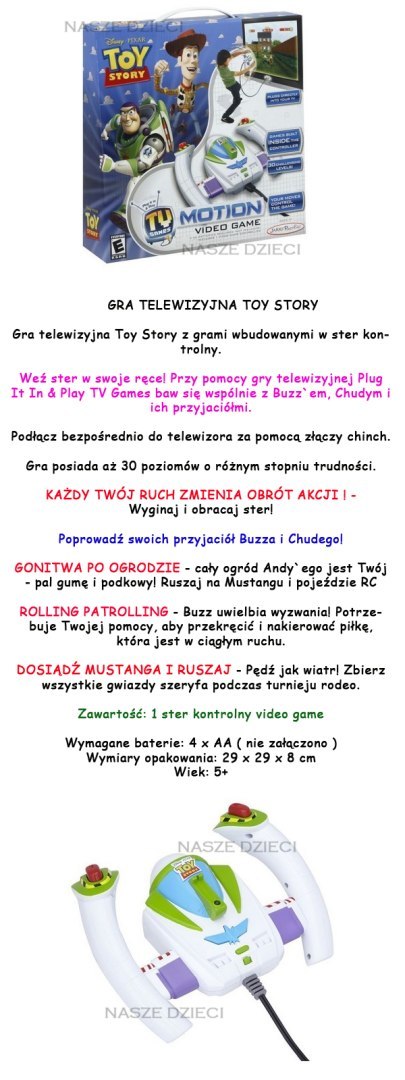 NASZE DZIECI
Disney · PIXAR
TOY
STORY
PLUGS DIRECTLY
INTO YOUR TV
GAMES BUILT
INSIDE THE
CONTROLLER
30 CHALLENGING
LEVELS!
YOUR MOVES
CONTROL
THE GAME!
TOY
STORY
E
TV
GAMES
MOTION
VIDEO GAME
NASZE DZIECI
GRA TELEWIZYJNA TOY STORY
Gra telewizyjna Toy Story z grami wbudowanymi w ster kon-
trolny.
Weź ster w swoje ręce! Przy pomocy gry telewizyjnej Plug
It In & Play TV Games baw się wspólnie z Buzz`em, Chudym i
ich przyjaciółmi.
Podłącz bezpośrednio do telewizora za pomocą złączy chinch.
Gra posiada aż 30 poziomów o różnym stopniu trudności.
KAŻDY TWÓJ RUCH ZMIENIA OBRÓT AKCJI ! -
Wyginaj i obracaj ster!
Poprowadź swoich przyjaciół Buzza i Chudego!
GONITWA PO OGRODZIE - cały ogród Andy`ego jest Twój
- pal gumę i podkowy! Ruszaj na Mustangu i pojeździe RC
ROLLING PATROLLING - Buzz uwielbia wyzwania! Potrze-
buje Twojej pomocy, aby przekręcić i nakierować piłkę,
która jest w ciągłym ruchu.
DOSIĄDŹ MUSTANGA I RUSZAJ - Pędź jak wiatr! Zbierz
wszystkie gwiazdy szeryfa podczas turnieju rodeo.
Zawartość: 1 ster kontrolny video game
Wymagane baterie: 4 x AA ( nie załączono )
Wymiary opakowania: 29 x 29 x 8 cm
Wiek: 5+
NASZE DZIECI
TOY
STORY
NASZE DZIECI